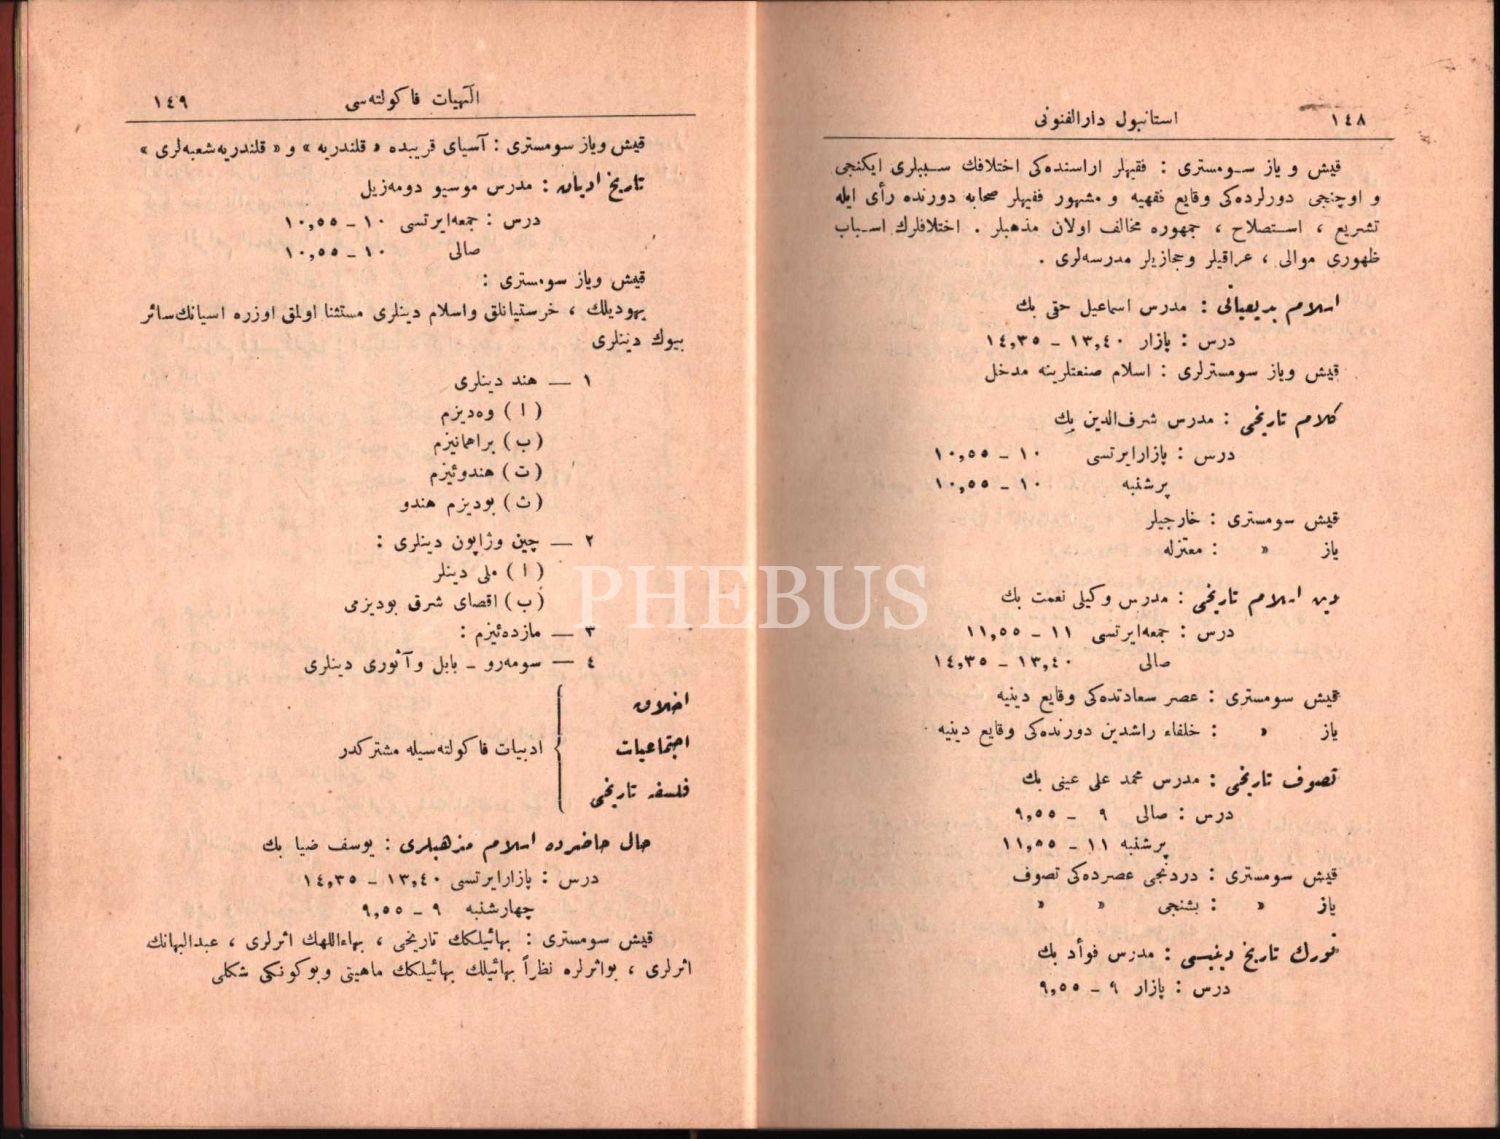 ١٤٨
استانبول دارالفنونی
قیش و یاز سومستری : فقیهلر اراسنده‌کی اختلافك سببلری ایکنجی
و اوچنجی دورلرده‌کی وقایع فقهیه و مشهور فقیهلر صحابه دورنده رأی ایله
تشریع ، استصلاح ، جمهوره مخالف اولان مذهبلر . اختلافلرك اسباب
ظهوری موالی ، عراقیلر وحجازیلر مدرسه‌لری .
اسلام بدیعیاتی : مدرس اسماعیل حقی بك
درس : پازار ١٣,٤٠ – ١٤,٣٥
قیش ویاز سومسترلری : اسلام صنعتلرینه مدخل
کلام تاریخی : مدرس شرف‌الدین بك
درس : پازارایرتسی ١٠ – ١٠,٥٥
پرشنبه ١٠ – ١٠,٥٥
قیش سومستری : خارجیلر
یاز » : معتزله
دین اسلام تاریخی : مدرس وکیلی نعمت بك
درس : جمعه‌ایرتسی ١١ – ١١,٥٥
صالی ١٣,٤٠ – ١٤,٣٥
قیش سومستری : عصر سعادتده‌کی وقایع دینیه
یاز » : خلفاء راشدین دورنده‌کی وقایع دینیه
تصوف تاریخی : مدرس محمد علی عینی بك
درس : صالی ٩ – ٩,٥٥
پرشنبه ١١ – ١١,٥٥
قیش سومستری : دردنجی عصرده‌کی تصوف
یاز » : بشنجی » »
تورك تاریخ دینیسی : مدرس فوأد بك
درس : پازار ٩ – ٩,٥٥
الٓهیات فاکولته‌سی
١٤٩
قیش ویاز سومستری : آسیای قریبده « قلندریه » و « قلندریه شعبه‌لری »
تاریخ ادیان : مدرس موسیو دومه‌زیل
درس : جمعه‌ایرتسی ١٠ – ١٠,٥٥
صالی ١٠ – ١٠,٥٥
قیش ویاز سومستری :
یهودیلك ، خرستیانلق واسلام دینلری مستثنا اولمق اوزره اسیانك سائر
بیوك دینلری
١ — هند دینلری
( ا ) وه‌دیزم
( ب ) براهمانیزم
( ت ) هندوئیزم
( ث ) بودیزم هندو
٢ — چین وژاپون دینلری :
( ا ) ملی دینلر
( ب ) اقصای شرق بودیزمی
٣ — مازده‌ئیزم :
٤ — سومه‌رو – بابل وآثوری دینلری
اخلاق
اجتماعیات } ادبیات فاکولته‌سیله مشترکدر
فلسفه تاریخی
حال حاضرده اسلام مذهبلری : یوسف ضیا بك
درس : پازارایرتسی ١٣,٤٠ – ١٤,٣٥
چهارشنبه ٩ – ٩,٥٥
قیش سومستری : بهائیلکك تاریخی ، بهاءاللهك اثرلری ، عبدالبهانك
اثرلری ، بواثرلره نظراً بهائیلك بهائیلکك ماهیتی وبوکونکی شکلی
PHEBUS